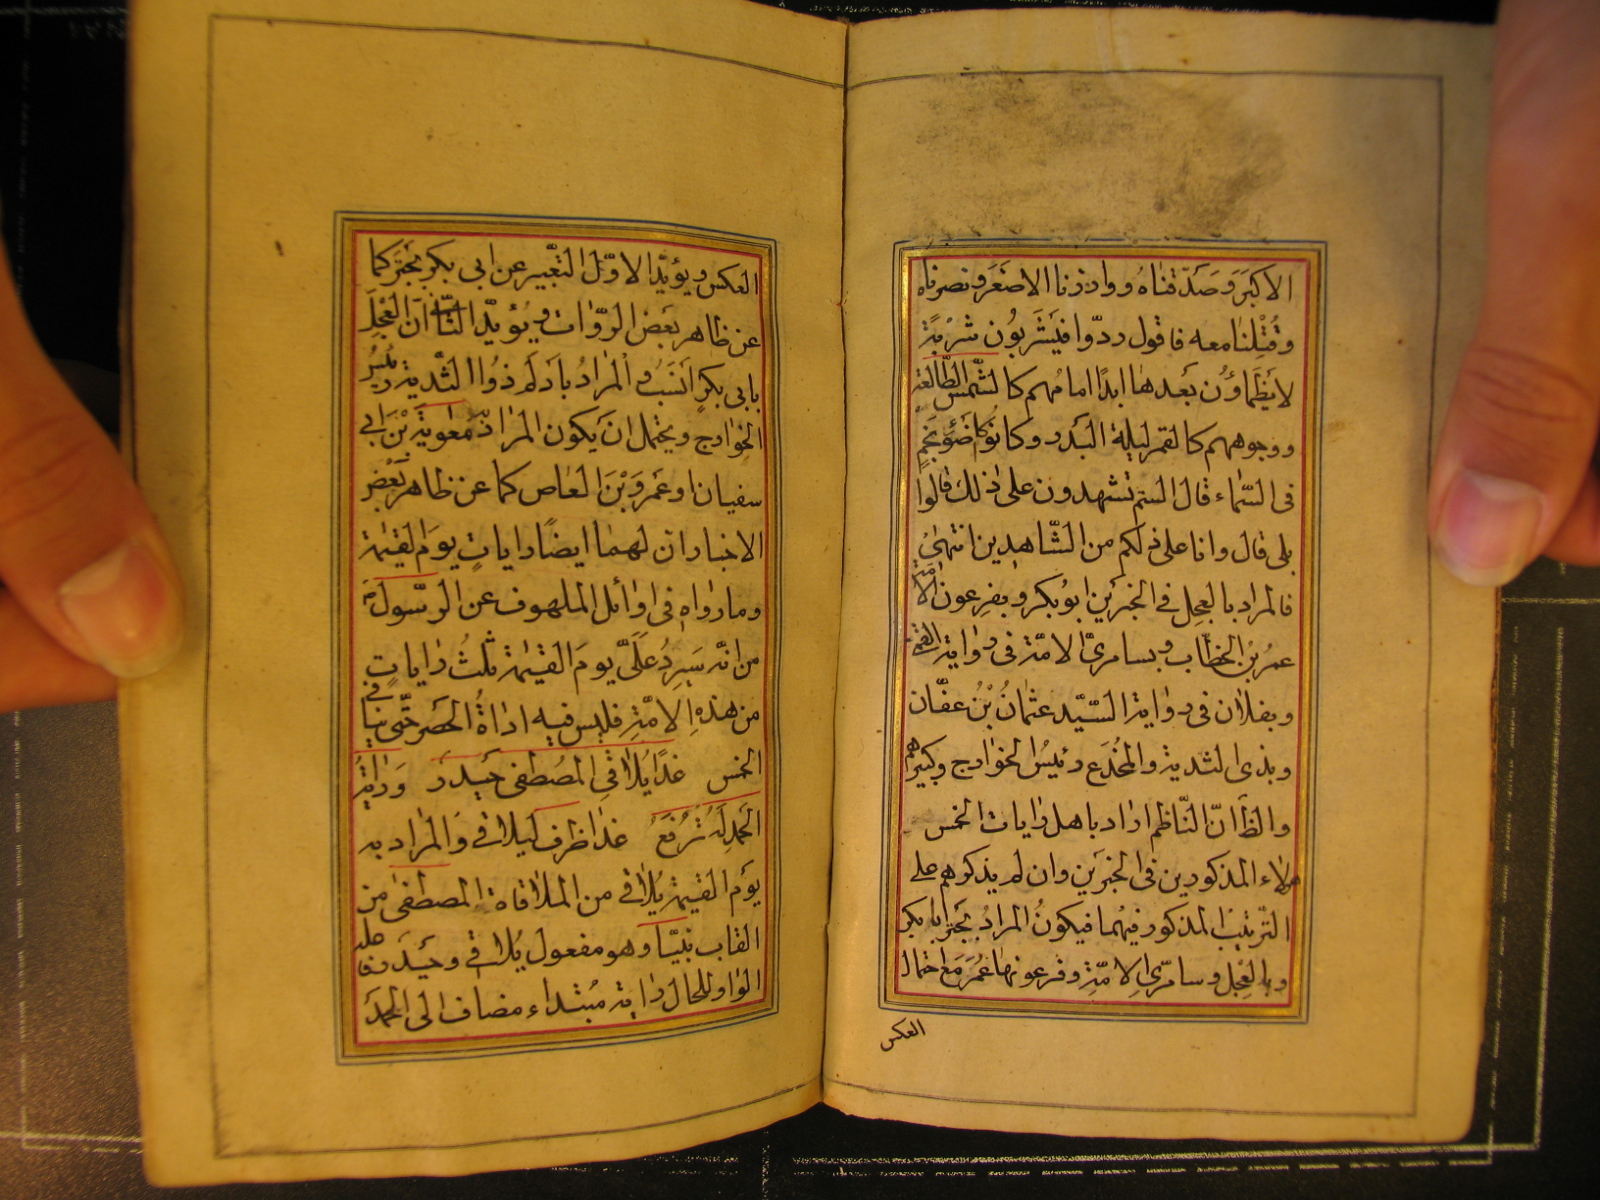 الاكبَرَ وَصَدَّقناهُ ووازذنا الاصَغرَ ونصرناه
وقُتِلْنامعه فاقول ردّوا فيَشَربُون شَرْبَةً
لايَظمَاؤُن بَعدهٰا ابدًا امامُهم كالشّمس الطّالعة
ووجوههم كالقمر ليلة البَدر وكانُوا كاضَوَءِ نجمٍ
فى السّماء قال الستم تشهدون على ذٰلك قالُوا
بلى قال وانا على ذلكم من الشّاهدين انتهىٰ
فالمراد بالعِجل في الخبرَين ابوبكر وبفرِعون الاُمّة
عمرُ بن الخطّاب وبسامرىّ الامّة فى روٰاية القمّے
وبفلاٰن فى روٰاية السّيّد عثمٰانُ بْنُ عفّان
وبذى الثدية والمُخدَع رئيسُ الخوٰارج وكبيرهم
والظّ انّ النّاظم اراد باهل رٰايات الخمس
هولاء المذكورين فى الخبرَين وان لم يذكرهم على
الترّتيب المذكور فيهما فيكونُ المراد بجترٍ ابابكر
وبالعِجل وسامرىّ الامّةِ وفرعونهٰا عُمَرَ مَعَ احتمال
العكس
العكس ويؤيّدُ الاوّل التعّبير عن ابى بكر بجتَر كما
عن ظاهر بعَض الروّٰات ويُؤيّد الثّانى ان العِجْلَ
بابى بكرٍ انسَبُ والمرادُ بادلَم ذُوا الثّدية رئيسُ
الخوٰارج ويحتمل ان يكون المراد منه معٰوية بْن ابى
سفيان اوعَمرَوَ بْنَ العٰاص كما عن ظاهر بَعْضِ
الاخبار ان لهمٰا ايضًا رايات يوَم القيٰمة
وما روٰاه فى اوٰائل الملهوف عن الرسّول ص
من انّه سَيَرِدُ عَلَىَّ يومَ القيٰمة ثلثُ رٰاياتٍ
من هذه الامّة فليس فيه ادٰاةُ الحَصَر حَتّى ينٰافى
الخمس غدًا يُلاٰقى المُصُطفى حَيدرُ وَرٰايَةُ
الحَمدِ لَهُ تُرْفَعُ غدًا ظرف ليلاٰقے والمرٰاد به
يوَم القيٰمة يُلاٰقے من الملاٰقاة المصطفىٰ من
القاب نبيّنا وهو مفعول يُلاٰقے وحَيدرَ فاعله
الوٰاو للحال رٰاية مُبتدٰاء مضاف الى الحَمدَ